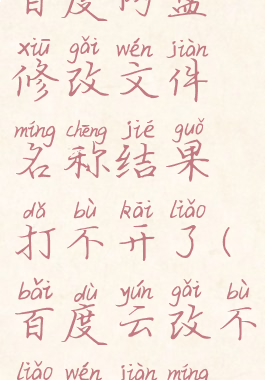 百度网盘
xiū gǎi wén jiàn
修改文件
míng chēng jié guǒ
名称结果
dǎ bù kāi liǎo
打不开了(
bǎi dù yún gǎi bù
百度云改不
liǎo wén jiàn míng